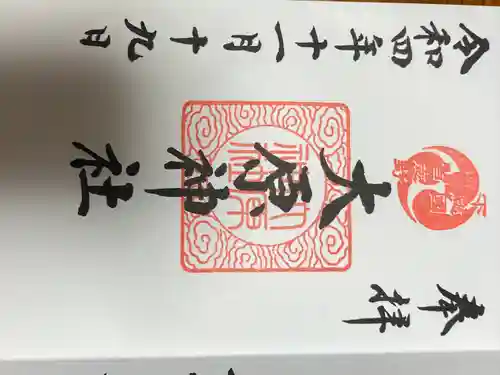 奉拝
下野國
大原神社
令和四年十一月十九日